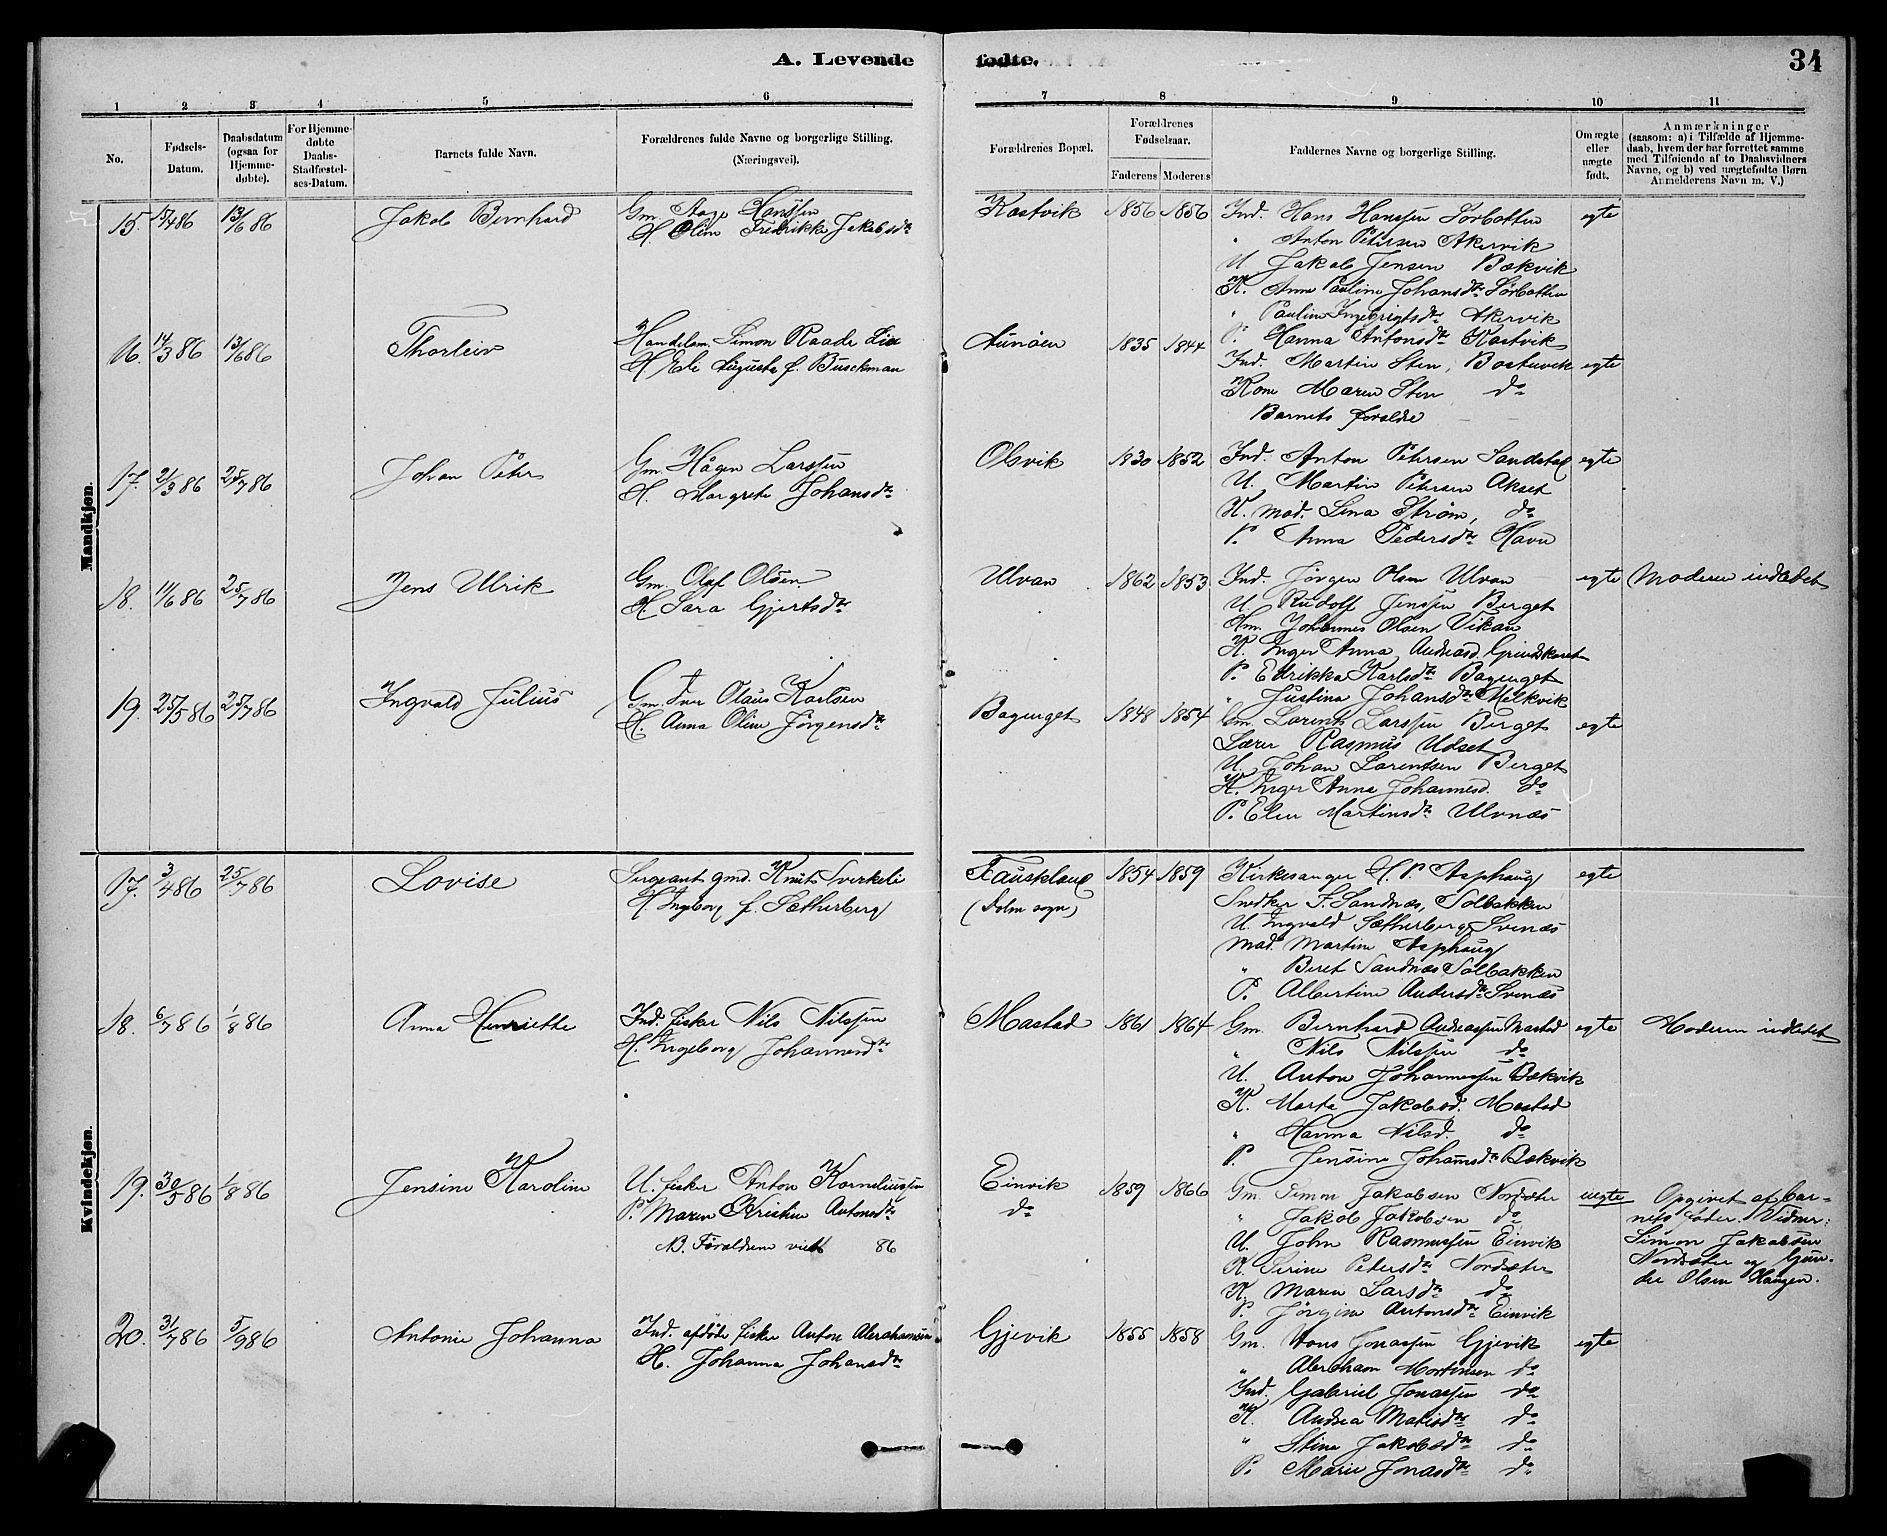 A. Levende fødte.
34
1 2 3 4 5 6 7 8 9 10 11
No.
Fødsels-
Datum.
Daabsdatum
(ogsaa for
Hjemme-
døbte).
For Hjemme-
døbte
Daabs-
Stadfæstel-
ses-Datum.
Barnets fulde Navn.
Forældrenes fulde Navne og borgerlige Stilling.
(Næringsvei).
Forældrenes Bopæl.
Forældrenes
Fødselsaar.
Faderens Moderens
Faddernes Navne og borgerlige Stilling.
Om ægte
eller
uægte
født.
Anmærkninger
(saasom: a) i Tilfælde af Hjemme-
daab, hvem der har forrettet samme
med Tilføiende af to Daabsvidners
Navne, og b) ved uægtefødte Børn
Anmelderens Navn m. V.)
Mandkjøn.
15. 15/4 86 13/6 86 Jakob Bernhard
Gm. Aage Hanssen
H. Oline Fredrikke Jakobsdtr
Kastvik 1856 1856
Ind. Hans Hanssen Sørbotten
" Anton Petersen Akervik
U. Jakob Jensen Bækvik
K. Anne Pauline Johansdtr Sørbotten
" Pauline Ingebrigtsdtr Akervik
P. Hanna Antonsdtr Kastvik
egte
16. 14/3 86 13/6 86 Thorleiv
Handelsm. Simon Raade Lia
H. Ele Augusta f. Buschman
Aunøen 1835 1844
Ind. Martin Sten, Bostuvik
Kone Maren Sten do
Barnets forældre
egte
17. 21/3 86 25/7 86 Johan Peter
Gm. Hågen Larssen
H. Margrete Johansdtr
Olsvik 1830 1852
Ind. Anton Petersen Sandstad
U. Martin Petersen Akset
K. mad. Lena Strøm, do
P. Anna Pedersdtr Havn
egte
18. 11/6 86 25/7 86 Jens Ulrik
Gm. Olaf Olsen
H. Sara Gjertsdtr
Ulvan 1862 1853
Ind. Jørgen Olsen Ulvan
U. Rudolf Jenssen Berget
Gm. Johannes Olsen Vikan
K. Inger Anna Andreasd. Grindskaret
P. Edrikka Karlsdtr Bagurget
" Justina Johansdtr Melkvik
egte
Moderen indledet
19. 25/5 86 25/7 86 Ingvald Julius
Gm. Iver Olaus Karlsen
H. Anna Oline Jørgensdtr
Bagurget 1848 1854
Gm. Lorents Larssen Berget
Lærer Rasmus Udset
U. Johan Lorentsen Berget
K. Inger Anna Johannesd. do
P. Elen Martinsdtr Ulvnæs
egte
Kvindekjøn.
17. 3/4 86 25/7 86 Lovise
Sergeant gmd. Knut Sverkeli
H. Ingeborg f. Sætherberg
Fauskland
(Dolm sogn)
1854 1859
Kirkesanger H. P. Asphaug
Snedker F. Sandnæs, Solbakken
U. Ingvald Sætherberg Svenæs
Mad. Martine Asphaug
" Beret Sandnæs Solbakken
P. Albertine Andersdtr Svenæs
egte
18. 6/7 86 1/8 86 Anna Henriette
Ind. fisker Nils Nilssen
H. Ingeborg Johannesdtr
Mastad 1861 1864
Gm. Bernhard Andreassen Mastad
" Nils Nilssen do
U. Anton Johannessen Bækvik
K. Marta Jakobsd. Mastad
" Hanna Nilsd. do
P. Jensine Johansdtr Bækvik
egte
Moderen indledet
19. 30/5 86 1/8 86 Jensine Karoline
U. fisker Anton Korneliussen
P. Maren Kristine Antonsdtr
NB. Forældrene viet 86
Einvik
do
1859 1866
Gm. Simon Jakobsen Nordsæter
" Jakob Jakobsen do
U. John Rasmussen Einvik
K. Serine Petersdtr Nordsæter
K. Maren Larsdtr do
P. Jørgine Antonsdtr Einvik
uegte
Opgivet af bar-
nets fader. Vidner:
Simon Jakobsen
Nordsæter og Gun-
der Olsen Haugen.
20. 31/7 86 5/9 86 Antonie Johanna
Ind. afdøde fisker Anton Abrahamsen
H. Johanna Johansdtr
Gjevik 1855 1858
Gm. Hans Jonassen Gjevik
" Abraham Mortensen do
Ind. Gabriel Jonassen do
K. Andrea Matisdtr do
" Stina Jakobsdtr do
P. Marie Jonasdtr do
egte